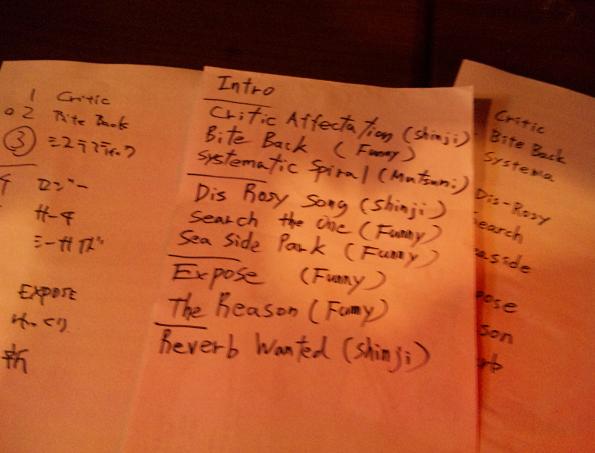 1 Critic
2 Bite Back
3 システマティック
4 ロジー
サーチ
シーサイズ
EXPOSE
ゆっくり
新
Intro
Critic Affectation (Shinji)
Bite Back (Funny)
Systematic Spiral (Mutsumi)
Dis Rosy Song (Shinji)
Search the One (Funny)
Sea Side Park (Funny)
Expose (Funny)
The Reason (Funny)
Reverb Wanted (Shinji)
Critic
Bite Back
Systema
Dis-Rosy
earch
aside
pose
son
rb